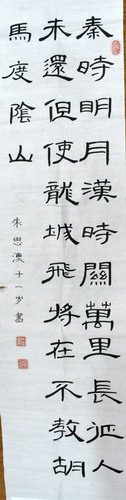 秦時明月漢時關萬里長征人
未還但使龍城飛將在不教胡
馬度陰山
朱思澳十一岁書